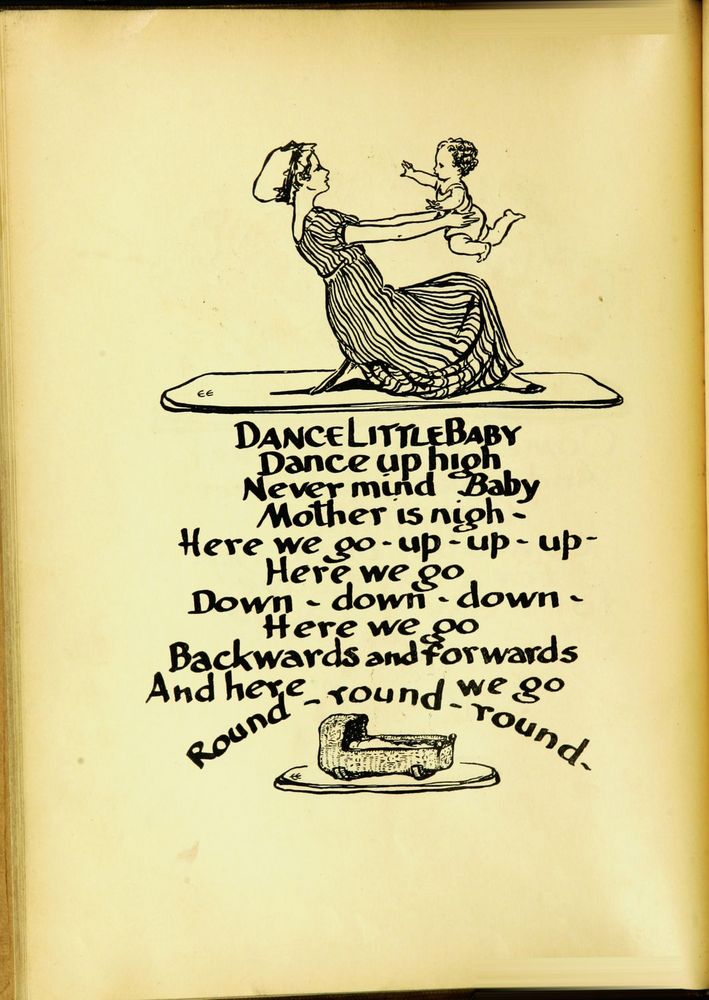 EE
DANCE LITTLE BABY
Dance up high
Never mind Baby
Mother is nigh -
Here we go - up - up - up -
Here we go
Down - down - down -
Here we go
Backwards and forwards
And here we go
Round - round - round -
EE